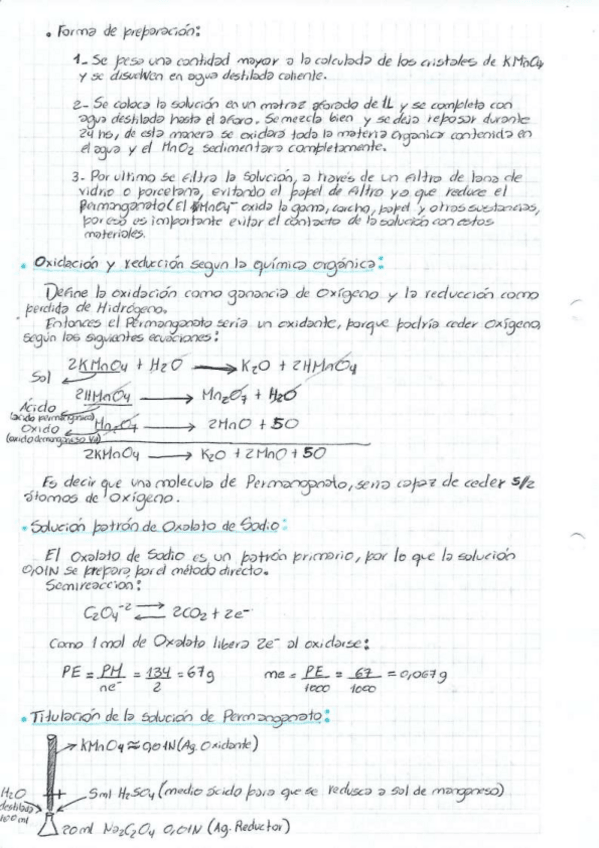 • Forma de preparación:
1- Se pesa una cantidad mayor a la calculada de los cristales de KMnO4
y se disuelven en agua destilada caliente.
2- Se coloca la solución en un matraz aforado de 1L y se completa con
agua destilada hasta el aforo. Se mezcla bien y se deja reposar durante
24 hs, de esta manera se oxidara toda la materia organica contenida en
el agua y el MnO2 sedimentara completamente.
3- Por ultimo se filtra la solución, a través de un filtro de lana de
vidrio o porcelana, evitando el papel de filtro ya que reduce el
Permanganato (El MnO4⁻ oxida la goma, corcho, papel y otros sustancias,
por eso es importante evitar el contacto de la solución con estos
materiales.
• Oxidación y reducción segun la química orgánica:
Define la oxidación como ganancia de Oxígeno y la reducción como
perdida de Hidrógeno.
Entonces el Permanganato seria un oxidante, porque podría ceder Oxígeno,
según los siguientes ecuaciones:
2KMnO4 + H2O → K2O + 2HMnO4
Sal
2HMnO4 → Mn2O7 + H2O
Ácido
(ácido permangánico)
Mn2O7 → 2MnO + 5O
Oxido
(oxido de manganeso VII)
2KMnO4 → K2O + 2MnO + 5O
Es decir que una molecula de Permanganato, seria capaz de ceder 5/2
átomos de Oxígeno.
• Solución patrón de Oxalato de Sodio:
El Oxalato de Sodio es un patrón primario, por lo que la solución
0,01N se prepara por el método directo.
Semireaccion:
C2O4⁻² ⇄ 2CO2 + 2e⁻
Como 1 mol de Oxalato libera 2e⁻ al oxidarse:
PE = PM/ne⁻ = 134/2 = 67g me = PE/1000 = 67/1000 = 0,067g
• Titulación de la solución de Permanganato:
→ KMnO4 ≈ 0,01N (Ag. Oxidante)
H2O
destilada
100 ml
5ml H2SO4 (medio ácido para que se reduzca a sal de manganeso)
20ml Na2C2O4 0,01N (Ag. Reductor)